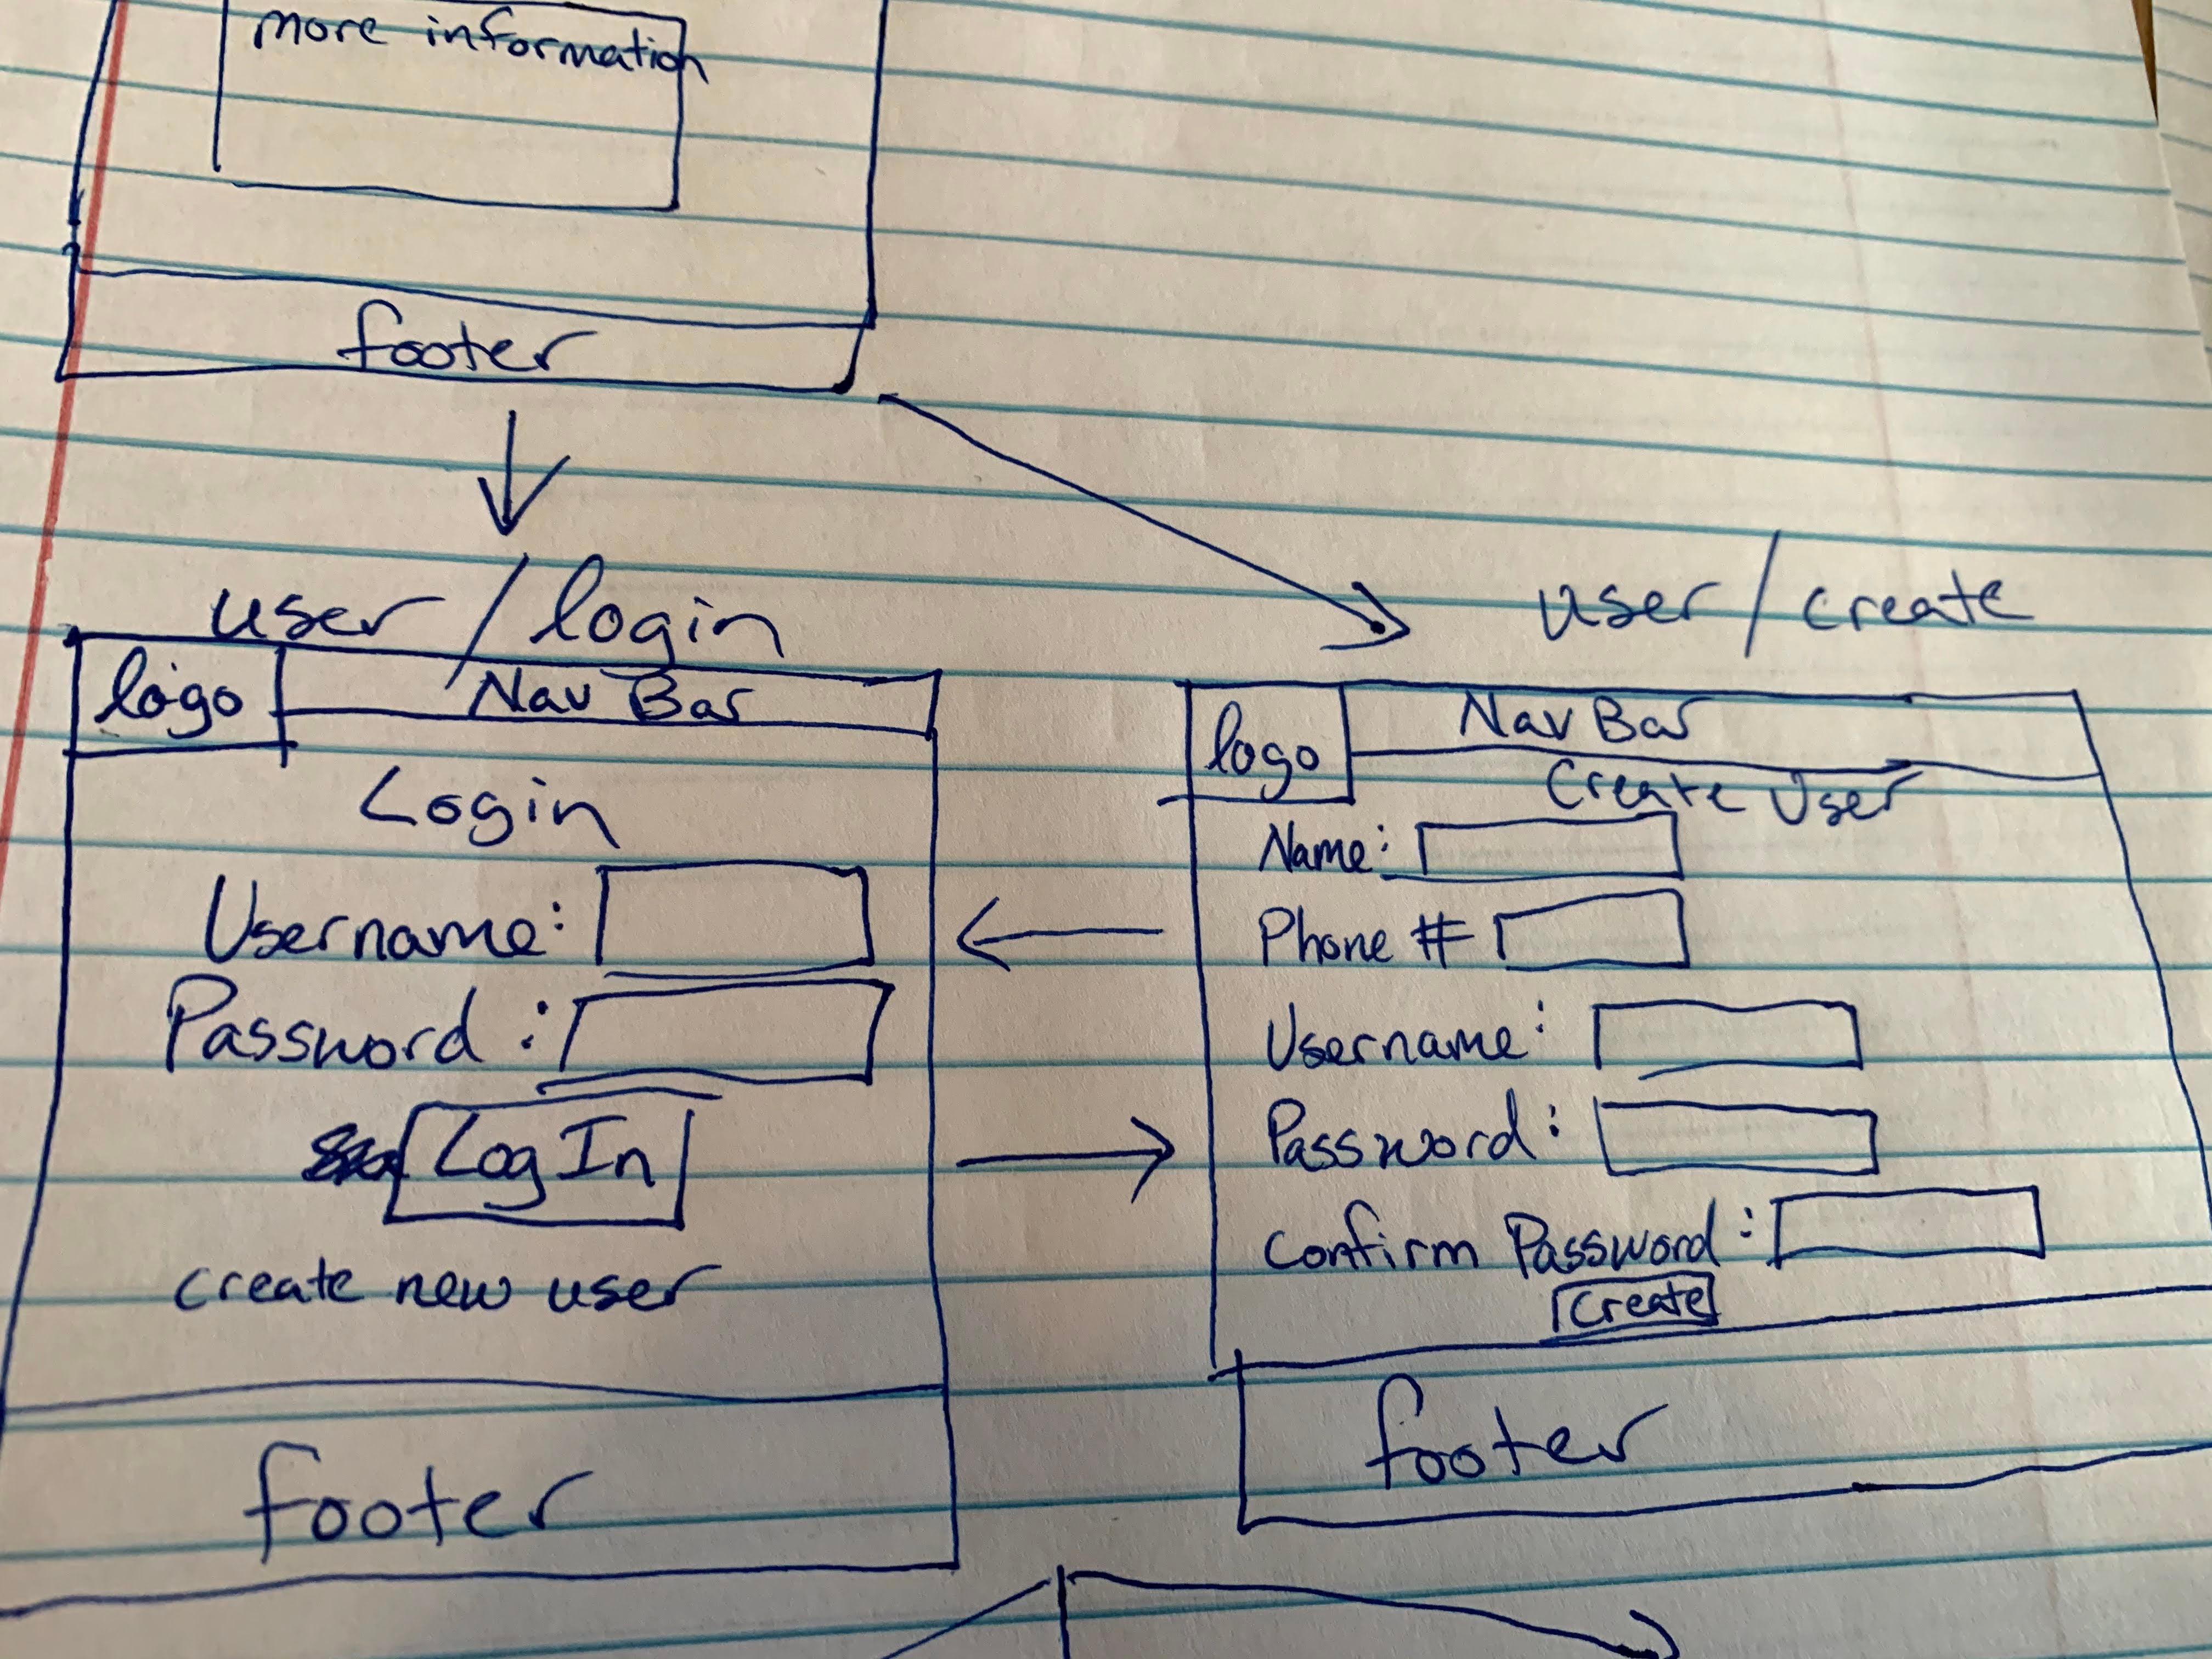 more information
footer
user/login
logo
Nav Bar
Login
Username:
Password:
Log In
create new user
footer
user/create
logo
Nav Bar
Create User
Name:
Phone #
Username:
Password:
Confirm Password:
Create
footer